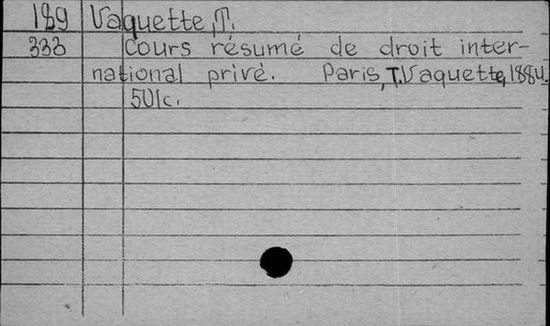 189 Vaquette, T.
333 Cours résumé de droit inter-
national privé. Paris, T. Vaquette, 1884.
501c.